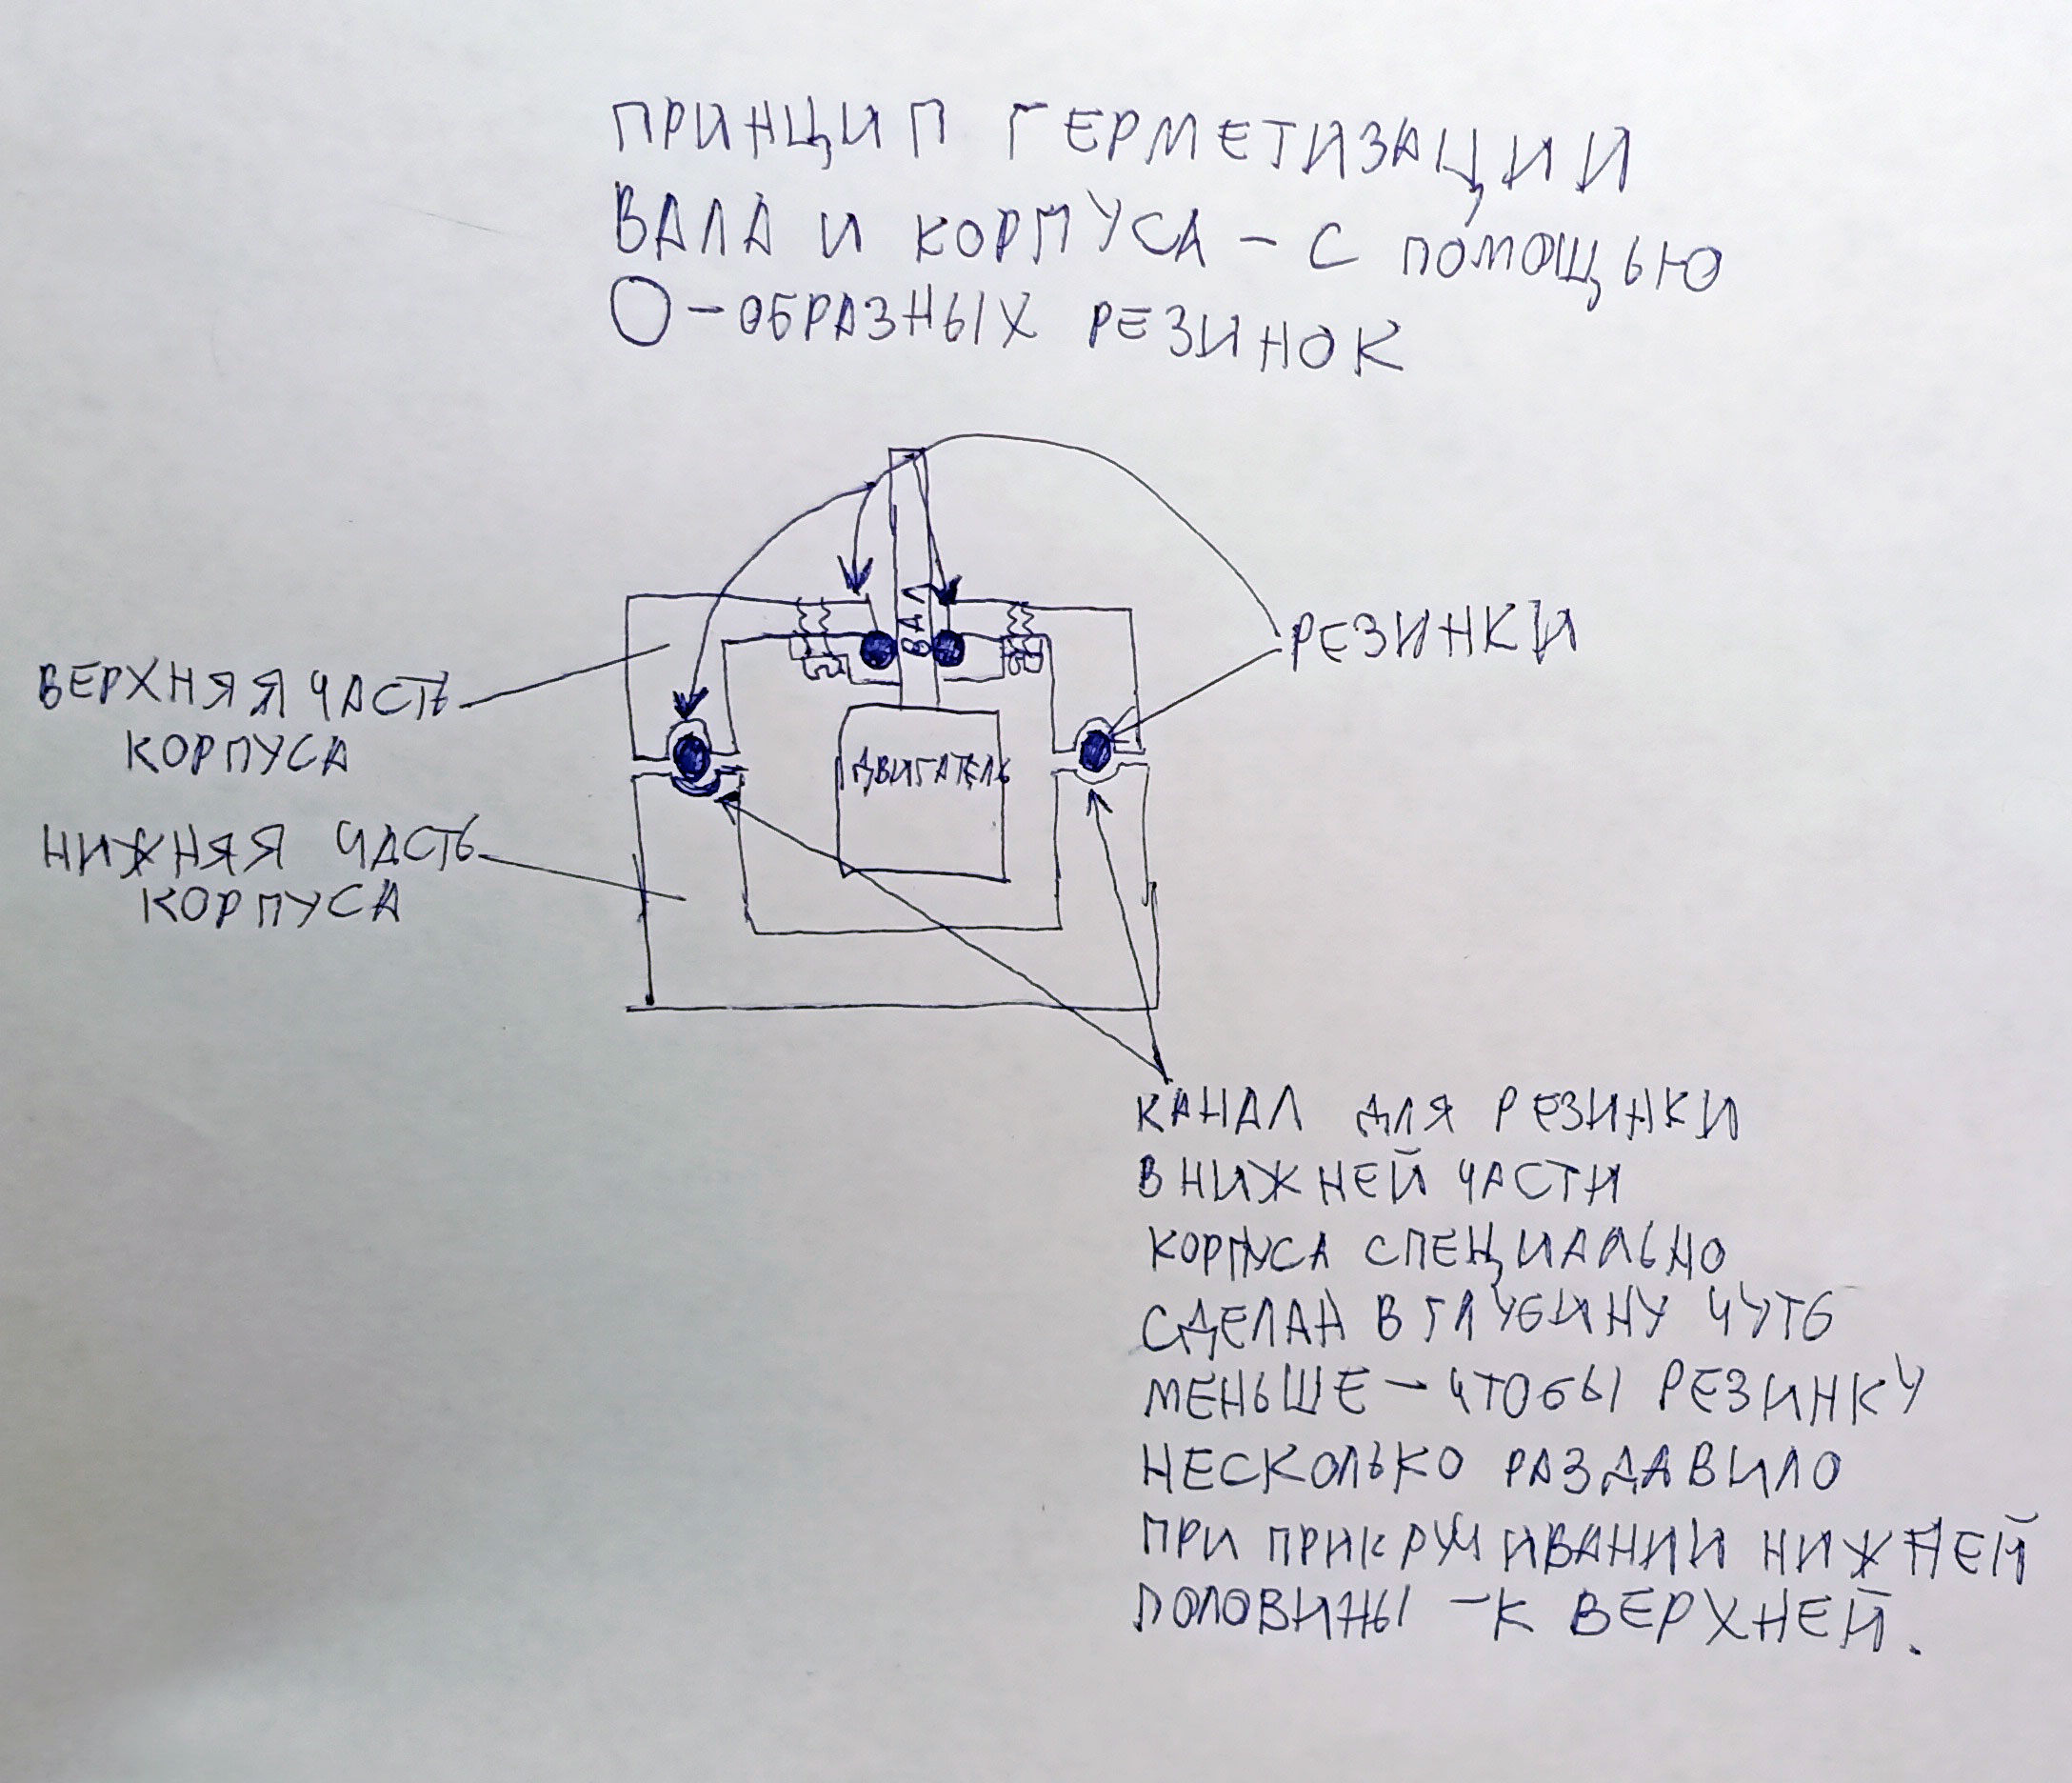 ПРИНЦИП ГЕРМЕТИЗАЦИИ
ВАЛА И КОРПУСА – С ПОМОЩЬЮ
О – ОБРАЗНЫХ РЕЗИНОК
ВАЛ
РЕЗИНКИ
ВЕРХНЯЯ ЧАСТЬ
КОРПУСА
ДВИГАТЕЛЬ
НИЖНЯЯ ЧАСТЬ
КОРПУСА
КАНАЛ ДЛЯ РЕЗИНКИ
В НИЖНЕЙ ЧАСТИ
КОРПУСА СПЕЦИАЛЬНО
СДЕЛАН В ГЛУБИНУ ЧУТЬ
МЕНЬШЕ – ЧТОБЫ РЕЗИНКУ
НЕСКОЛЬКО РАЗДАВИЛО
ПРИ ПРИКРУЧИВАНИИ НИЖНЕЙ
ПОЛОВИНЫ – К ВЕРХНЕЙ.